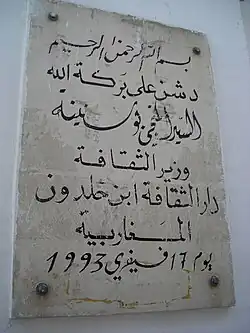 بسم الله الرحمن الرحيم
دشن على بركة الله
السيد المنجي بوسنينة
وزير الثقافة
دار الثقافة ابن خلدون
المغاربية
يوم 17 فيفري 1993